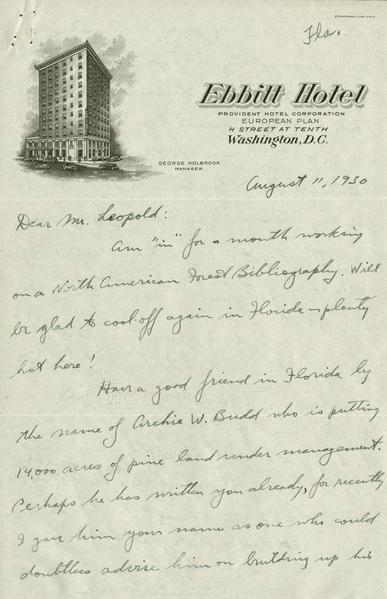 Fla.
Ebbitt Hotel
PROVIDENT HOTEL CORPORATION
EUROPEAN PLAN
H STREET AT TENTH
Washington, D.C.
GEORGE HOLBROOK
MANAGER
August 11, 1930
Dear Mr. Leopold:
Am "in" for a month working
on a North American Forest Bibliography. Will
be glad to cool off again in Florida – plenty
hot here!
Have a good friend in Florida by
the name of Archie W. Budd who is putting
14,000 acres of pine land under management.
Perhaps he has written you already, for recently
I gave him your name as one who could
doubtless advise him on building up his